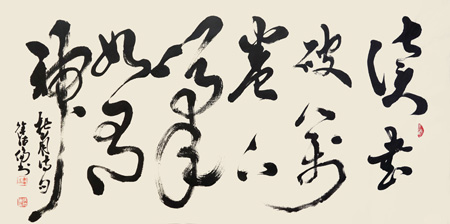 读书
破万
卷下
笔
如有
神
杜甫诗句